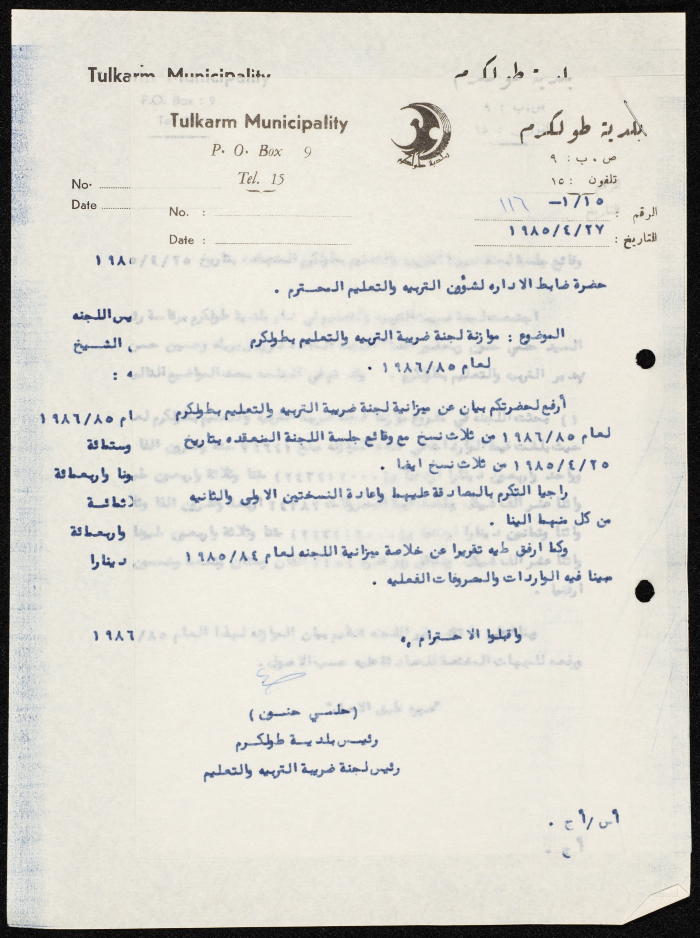 Tulkarm Municipality
بلدية طولكرم
Tulkarm Municipality
بلدية طولكرم
P. O. Box 9
ص . ب : ٩
Tel. 15
تلفون : ١٥
بلدية طولكرم
No.
Date
No. :
Date :
الرقم : ١/١٥– ١١٦
التاريخ : ١٩٨٥/٤/٢٧
حضرة ضابط الاداره لشؤون التربيه والتعليم المحترم .
الموضوع : موازنة لجنة ضريبة التربيه والتعليم بطولكرم
لعام ١٩٨٦/٨٥ .
أرفع لحضرتكم بيان عن ميزانية لجنة ضريبة التربيه والتعليم بطولكرم
لعام ١٩٨٦/٨٥ من ثلاث نسخ مع وقائع جلسة اللجنة المنعقده بتاريخ
١٩٨٥/٤/٢٥ من ثلاث نسخ ايضا .
راجيا التكرم بالمصادقة عليهما واعادة النسختين الاولى والثانيه
من كل منهما الينا .
وكما ارفق طيه تقريرا عن خلاصة ميزانية اللجنه لعام ١٩٨٥/٨٤
مبينا فيه الواردات والمصروفات الفعليه .
واقبلوا الاحترام ،،
(حلمي حنون)
رئيس بلدية طولكرم
رئيس لجنة ضريبة التربيه والتعليم
أس/أح .
يس اللجنه
الشيخ
ام ١٩٨٦/٨٥
وستمائة
ونا واربعمائة
واربعمائة
دينارا
١٩٨٦